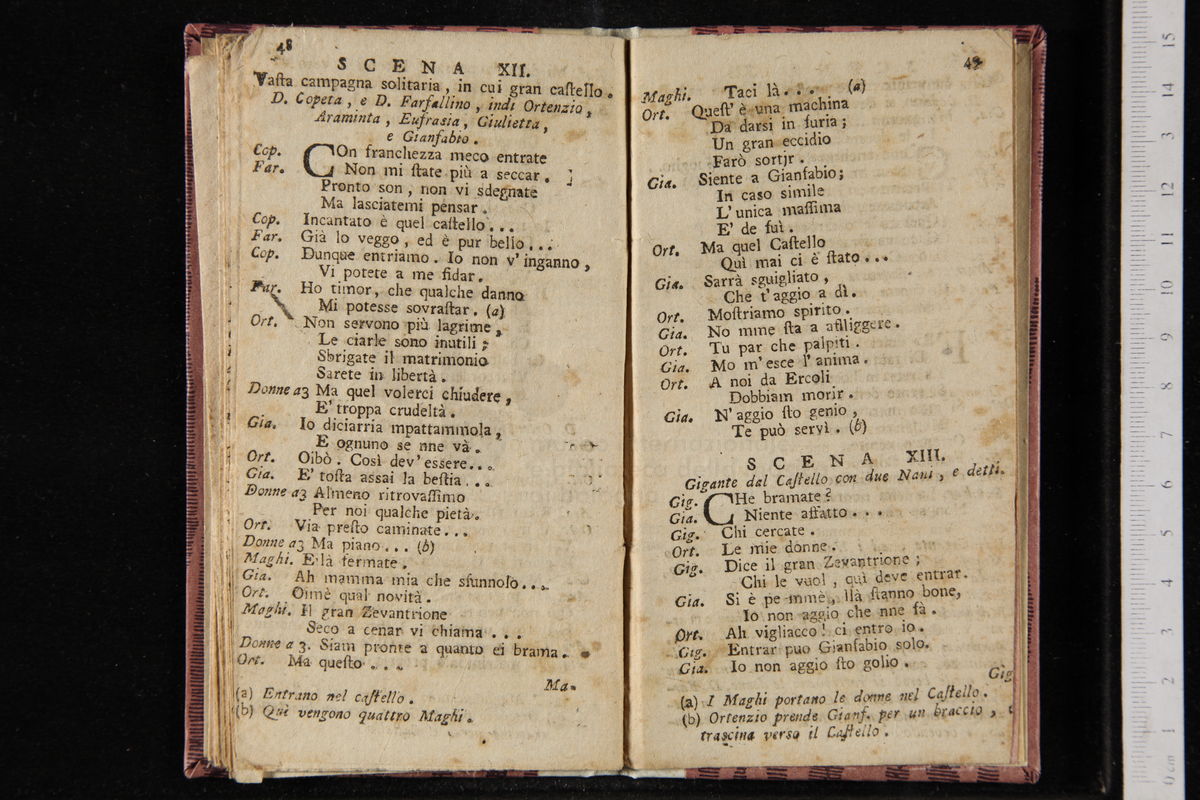 48
SCENA XII.
Vaſta campagna solitaria, in cui gran caſtello.
D. Copeta, e D. Farfallino, indi Ortenzio,
Araminta, Eufrasia, Giulietta,
e Gianfabio.
Cop. COn franchezza meco entrate
Far. Non mi ſtate più a seccar.
Pronto son, non vi sdegnate
Ma lasciatemi pensar.
Cop. Incantato è quel caſtello...
Far. Già lo veggo, ed è pur bello...
Cop. Dunque entriamo. Io non v'inganno,
Vi potete a me fidar.
Far. Ho timor, che qualche danno
Mi potesse sovraſtar. (a)
Ort. Non servono più lagrime,
Le ciarle sono inutili;
Sbrigate il matrimonio
Sarete in libertà.
Donne a3 Ma quel volerci chiudere,
E' troppa crudeltà.
Gia. Io diciarria mpattammola,
E ognuno se nne và.
Ort. Oibò. Così dev'essere...
Gia. E' toſta assai la beſtia...
Donne a3 Almeno ritrovaſſimo
Per noi qualche pietà.
Ort. Via preſto caminate...
Donne a3 Ma piano... (b)
Maghi. Elà fermate.
Gia. Ah mamma mia che sfunnolo...
Ort. Oimè qual novità.
Maghi. Il gran Zevantrione
Seco a cenar vi chiama...
Donne a 3. Siam pronte a quanto ei brama.
Ort. Ma queſto...
Ma-
(a) Entrano nel caſtello.
(b) Quì vengono quattro Maghi.
49
Maghi. Taci là... (a)
Ort. Queſt'è una machina
Da darsi in furia;
Un gran eccidio
Farò sortir.
Gia. Siente a Gianfabio;
In caso simile
L'unica maſſima
E' de fuì.
Ort. Ma quel Caſtello
Quì mai ci è ſtato...
Gia. Sarrà sguigliato,
Che t'aggio a dì.
Ort. Moſtriamo spirito.
Gia. No mme ſta a affliggere.
Ort. Tu par che palpiti.
Gia. Mo m'esce l'anima.
Ort. A noi da Ercoli
Dobbiam morir.
Gia. N'aggio ſto genio,
Te può servì. (b)
SCENA XIII.
Gigante dal Caſtello con due Nani, e detti.
Gig. CHe bramate?
Gia. Niente affatto...
Gig. Chi cercate.
Ort. Le mie donne.
Gig. Dice il gran Zevantrione;
Chi le vuol, quì deve entrar.
Gia. Si è pe mmè, llà ſtanno bone,
Io non aggio che nne fà.
Ort. Ah vigliacco! ci entro io.
Gig. Entrar puo Gianfabio solo.
Gia. Io non aggio ſto golio.
Gig
(a) I Maghi portano le donne nel Caſtello.
(b) Ortenzio prende Gianf. per un braccio,
trascina verso il Caſtello.